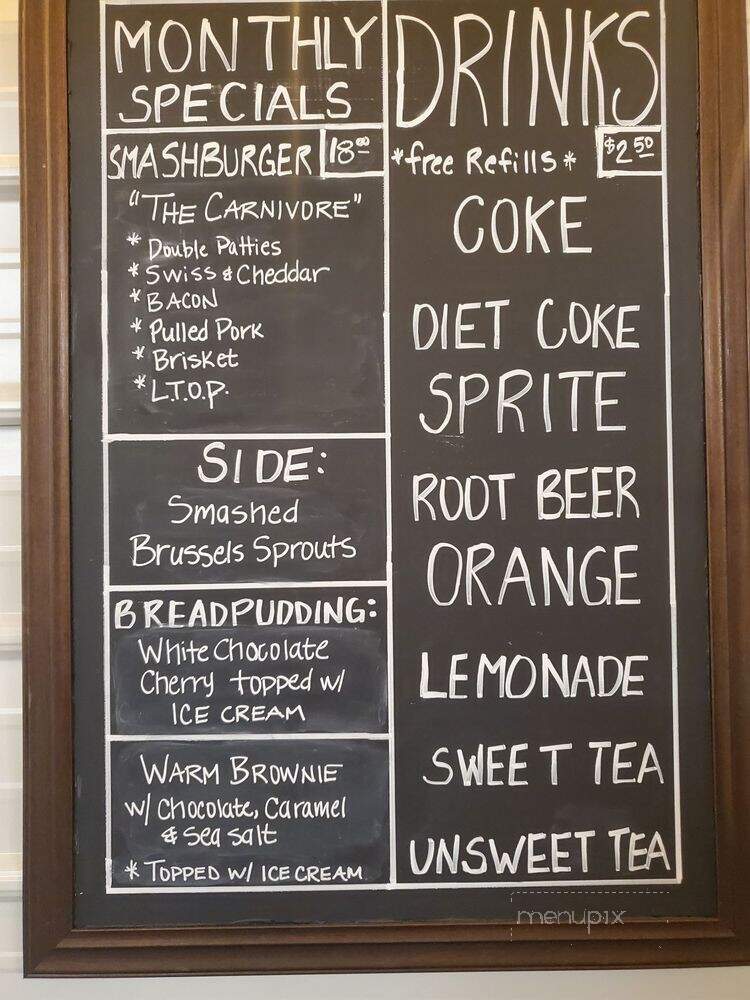 MONTHLY
SPECIALS
SMASHBURGER 18⁰⁰
"THE CARNIVORE"
* Double Patties
* Swiss & Cheddar
* BACON
* Pulled Pork
* Brisket
* L.T.O.P.
SIDE:
Smashed
Brussels Sprouts
BREADPUDDING:
White Chocolate
Cherry topped w/
ICE CREAM
WARM BROWNIE
w/ Chocolate, Caramel
& Sea Salt
* TOPPED W/ ICE CREAM
DRINKS
*free Refills* $2⁵⁰
COKE
DIET COKE
SPRITE
ROOT BEER
ORANGE
LEMONADE
SWEET TEA
UNSWEET TEA
menupix